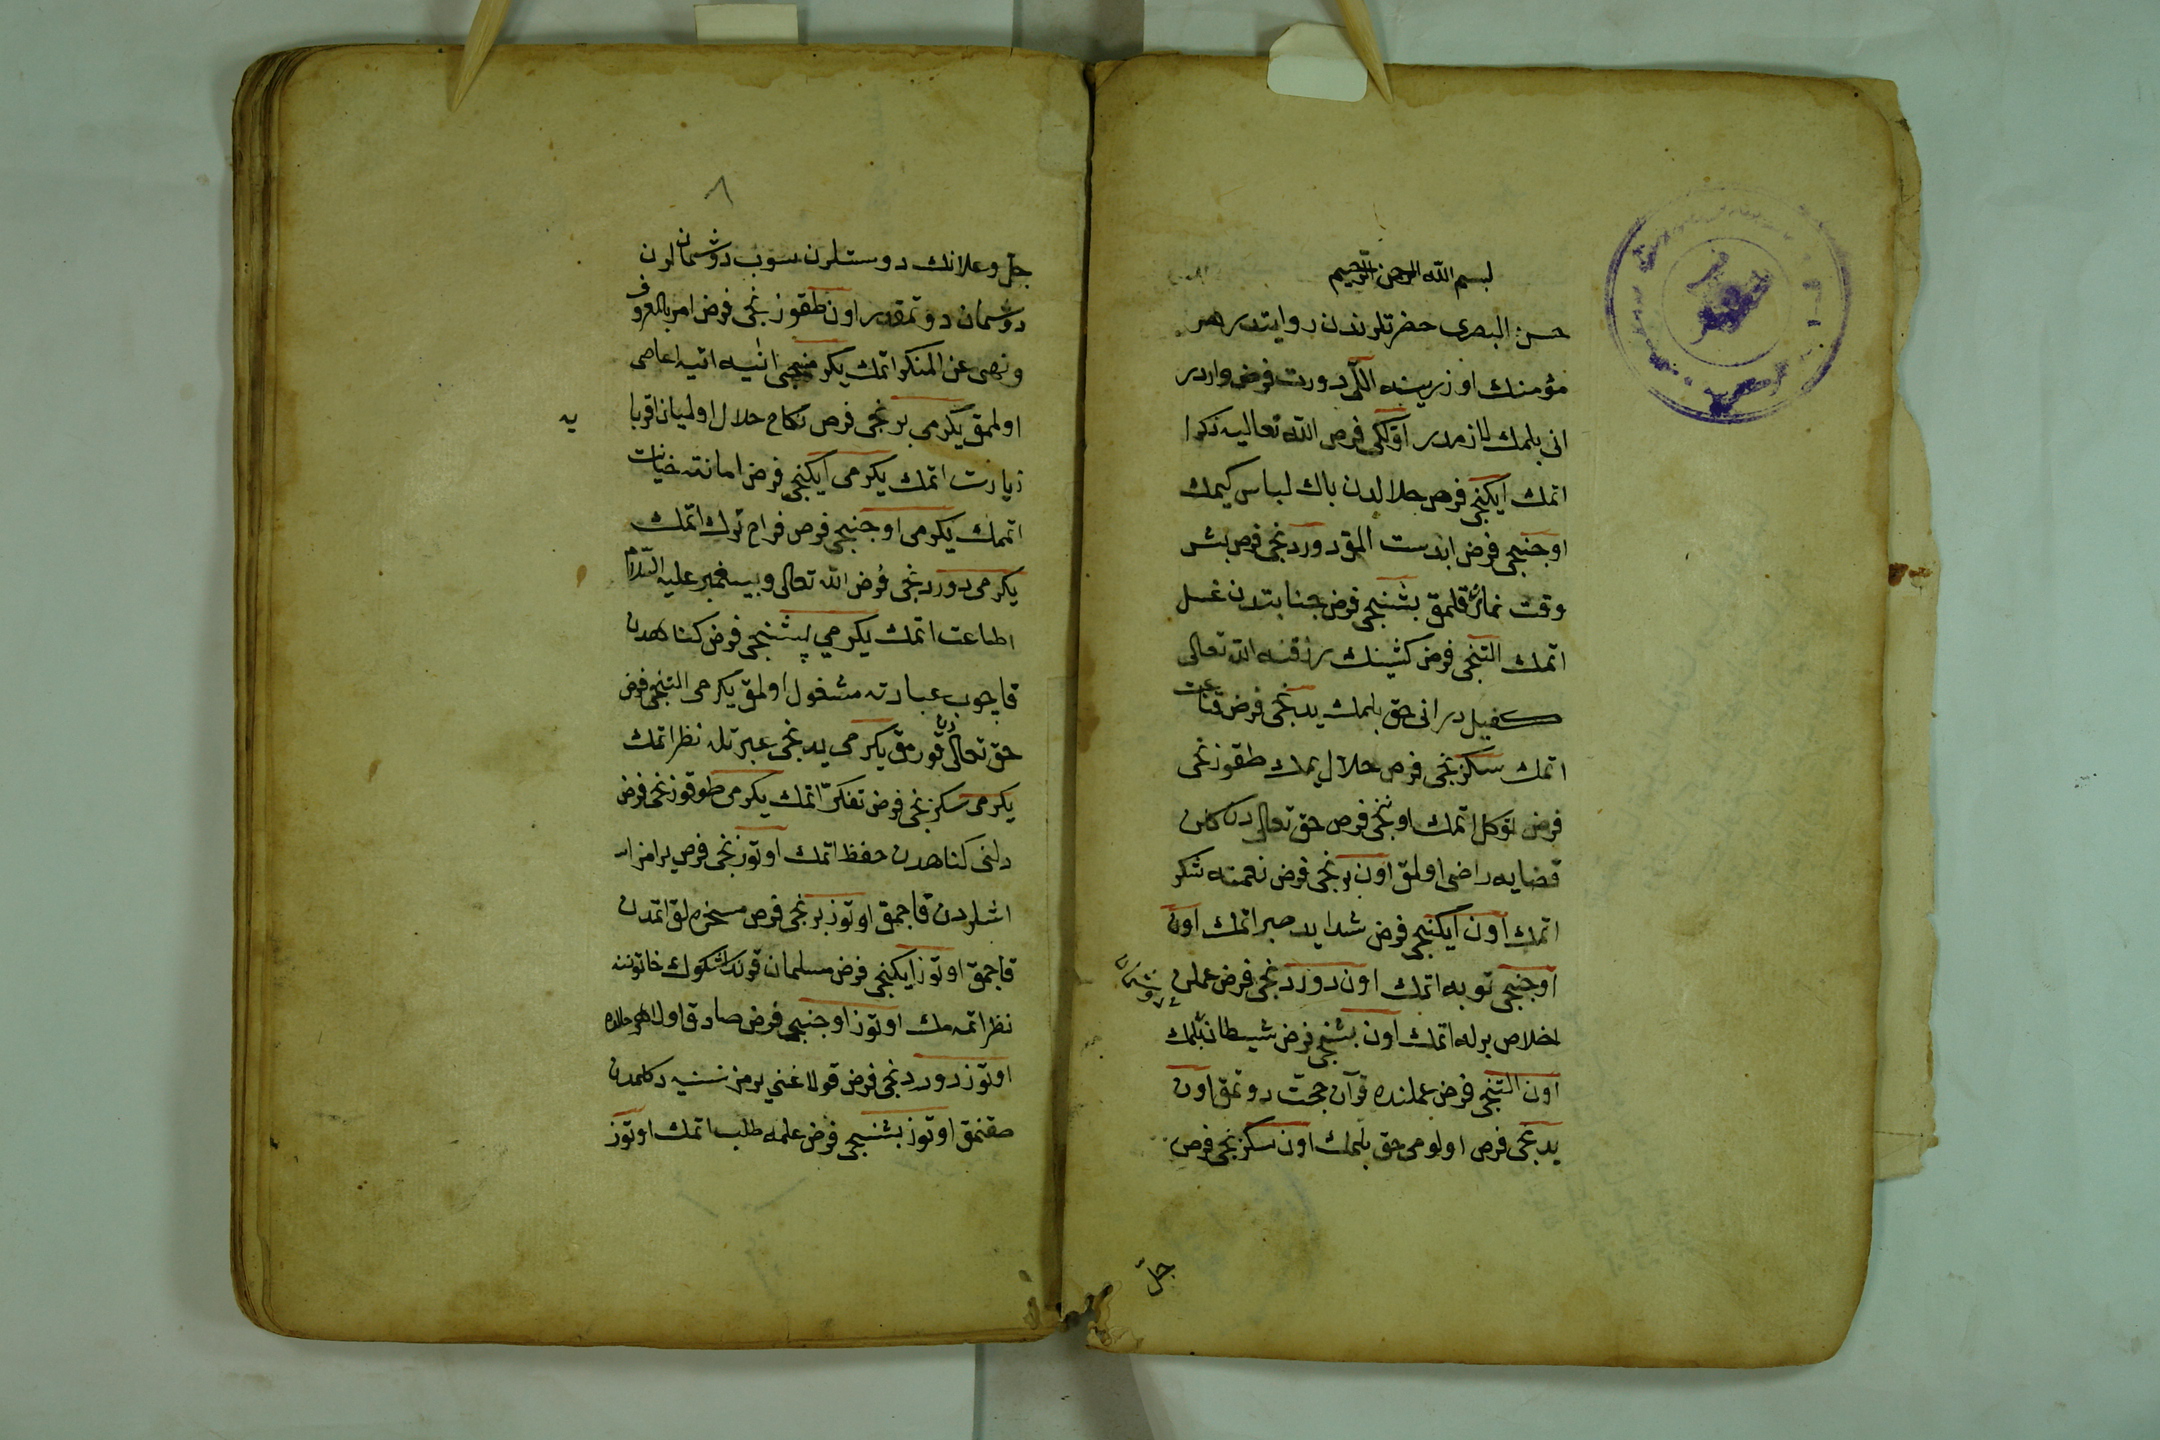 بسم الله الرحمن الرحيم
حسن البصرى حضرتلرندن روايتدر هر
مؤمنك اوزرينه اللّى دورت فرض واردر
انى بلمك لازمدر اوّلكى فرض الله تعاليه ذكر ا
اتمك ايكنجى فرض حلالدن باك لباس كيمك
اوجنجى فرض ابدست المق دوردنجى فرض بش
وقت نماز قلمق بشنجى فرض جنابتدن غسل
اتمك التنجى فرض كشينك رزقنه الله تعالى
كفيلدر انى حق بلمك يدنجى فرض قناعت
اتمك سكزنجى فرض حلال يمك طقوزنجى
فرض توكل اتمك اوننجى فرض حق تعالى دن كلن
قضايه راضى اولمق اون برنجى فرض نعمته شكر
اتمك اون ايكنجى فرض شدايد صبر اتمك اون
اوجنجى توبه اتمك اون دوردنجى فرض عملى
اخلاص برله اتمك اون بشنجى فرض شيطانى بلمك
دوشمان
اون التنجى فرض عملنده قرآن حجت دوتمق اون
يدنجى فرض اولومى حق بلمك اون سكزنجى فرض
جلّ
٨
جلّ وعلانك دوستلرن سوب دوشمانلرن
دوشمان دوتمقدر اون طقوزنجى فرض امر بالمعروف
ونهى عن المنكر اتمك يكرمنجى اتيه انيه اعاصى
اولمق يكرمى برنجى فرض نكاح حلال اوليان اقربا
يه
زيارت اتمك يكرمى ايكنجى فرض امانته خيانت
اتممك يكرمى اوجنجى فرض فراح ترك اتمك
يكرمى دوردنجى فرض الله تعالى وبيغمبر عليه السّلام
اطاعت اتمك يكرمي بشنجى فرض كناهدن
قاجوب عبادته مشغول اولمق يكرمى التنجى فرض
حق تعالى دن قورمق يكرمى يدنجى عبرتله نظر اتمك
يكرمى سكزنجى فرض تفكر اتمك يكرمى طوقوزنجى فرض
دلنى كناهدن حفظ اتمك اوتوزنجى فرض يرامز
اشلردن قاجمق اوتوز برنجى فرض مسخره لق اتمدن
قاجمق اوتوز ايكنجى فرض مسلمان خاتوننه
نظر اتمه مك اوتوز اوجنجى فرض صادق اول
اوتوز دوردنجى فرض قولاغنى يرمز نسنيه دكلمدن
صقنمق اوتوز بشنجى فرض علمه طلب اتمك اوتوز